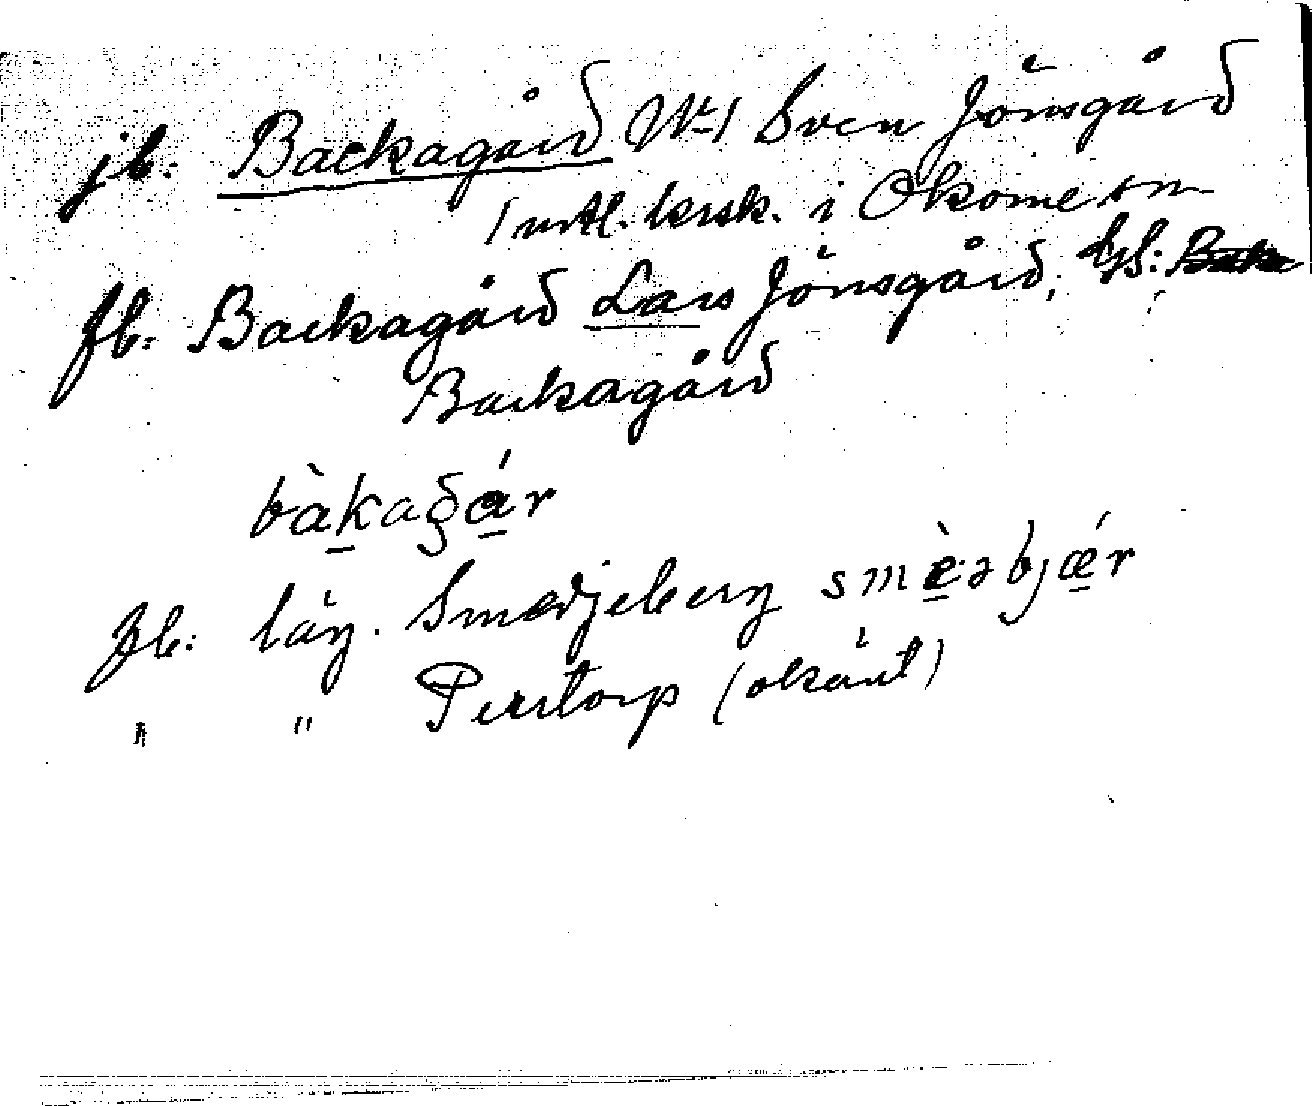 jb: Backagård No 1 Sven Jönsgård
1 mtl. krsk. i Okome sn
fb: Backagård Lars Jönsgård; kgb:
Backagård
bàkagár
fb: läg. Smedjeberg smèəbjǽr
" " Perstorp (okänt)